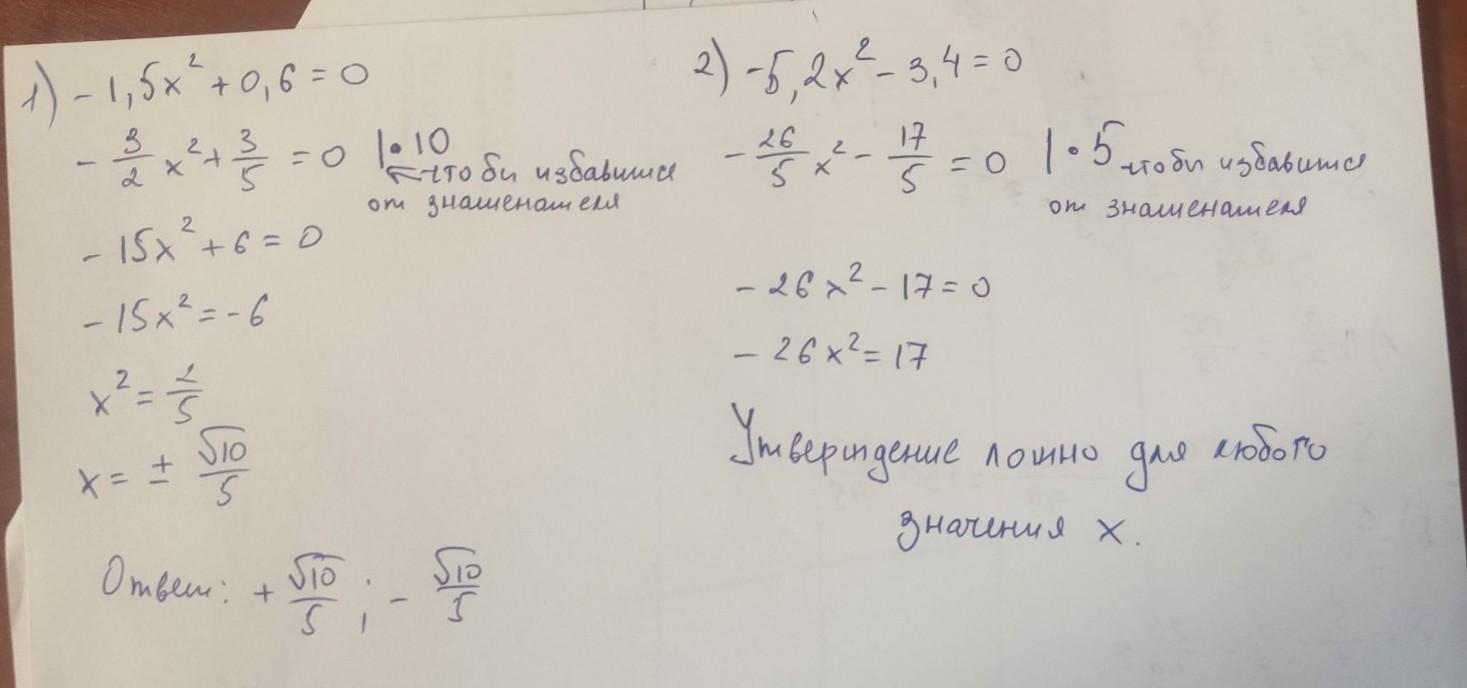 1) -1,5x² + 0,6 = 0
- 3/2 x² + 3/5 = 0 |• 10
чтоби избавится
от знаменателя
- 15x² + 6 = 0
- 15x² = - 6
x² = 2/5
x = ± √10/5
Ответ: + √10/5 ; - √10/5
2) -5,2x² - 3,4 = 0
- 26/5 x² - 17/5 = 0 |• 5 чтоби избавится
от знаменателя
- 26x² - 17 = 0
- 26x² = 17
Утверждение ложно для любого
значения x.